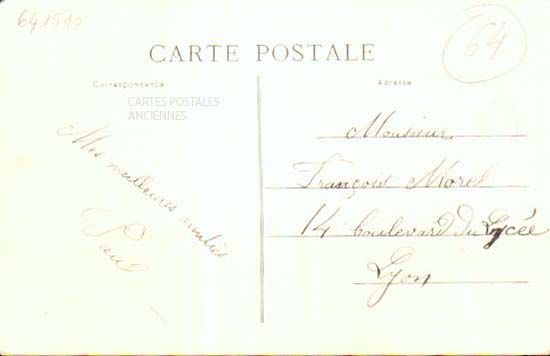 641910
64
CARTE POSTALE
Correspondance
Adresse
CARTES POSTALES
ANCIENNES
Mes meilleures amitiés
Paul
Monsieur
François Morel
14 boulevard du Lycée
Lyon